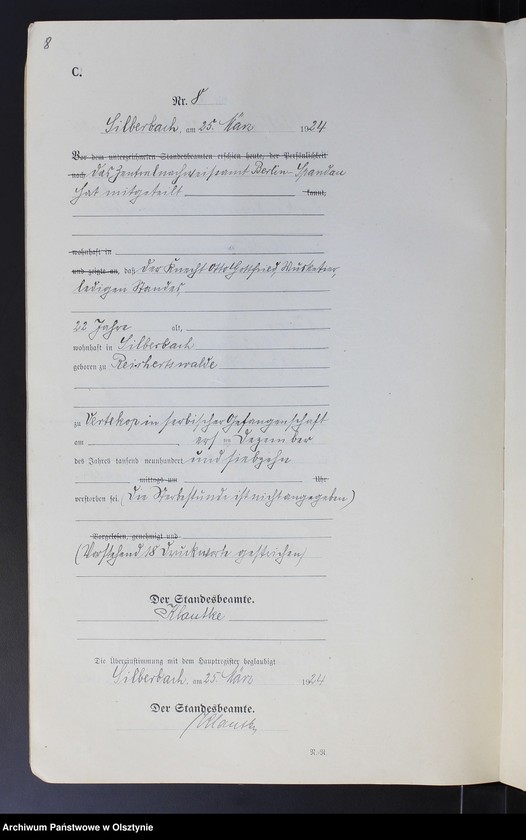 8
C.
Nr. 8
Silberbach, am 25. März 1924
Vor dem unterzeichneten Standesbeamten erschien heute, der Persönlichkeit
nach das Zentralnachweiseamt Berlin-Spandau
hat mitgeteilt kannt,
wohnhaft in
und zeigte an, daß der Knecht Otto Gottfried
ledigen Standes
22 Jahre alt,
wohnhaft in Silberbach
geboren zu Reichertswalde
zu Vertekop in serbischer Gefangenschaft
am Dezember
des Jahres tausend neunhundert und siebzehn
mittags um Uhr
verstorben sei. (Die Sterbestunde ist nicht angegeben)
Vorgelesen, genehmigt und
(Vorstehend 18 Druckworte gestrichen)
Der Standesbeamte.
Klautke
Die Übereinstimmung mit dem Hauptregister beglaubigt
Silberbach, am 25 März 1924
Der Standesbeamte.
Klautke
N.-R.
Archiwum Państwowe w Olsztynie